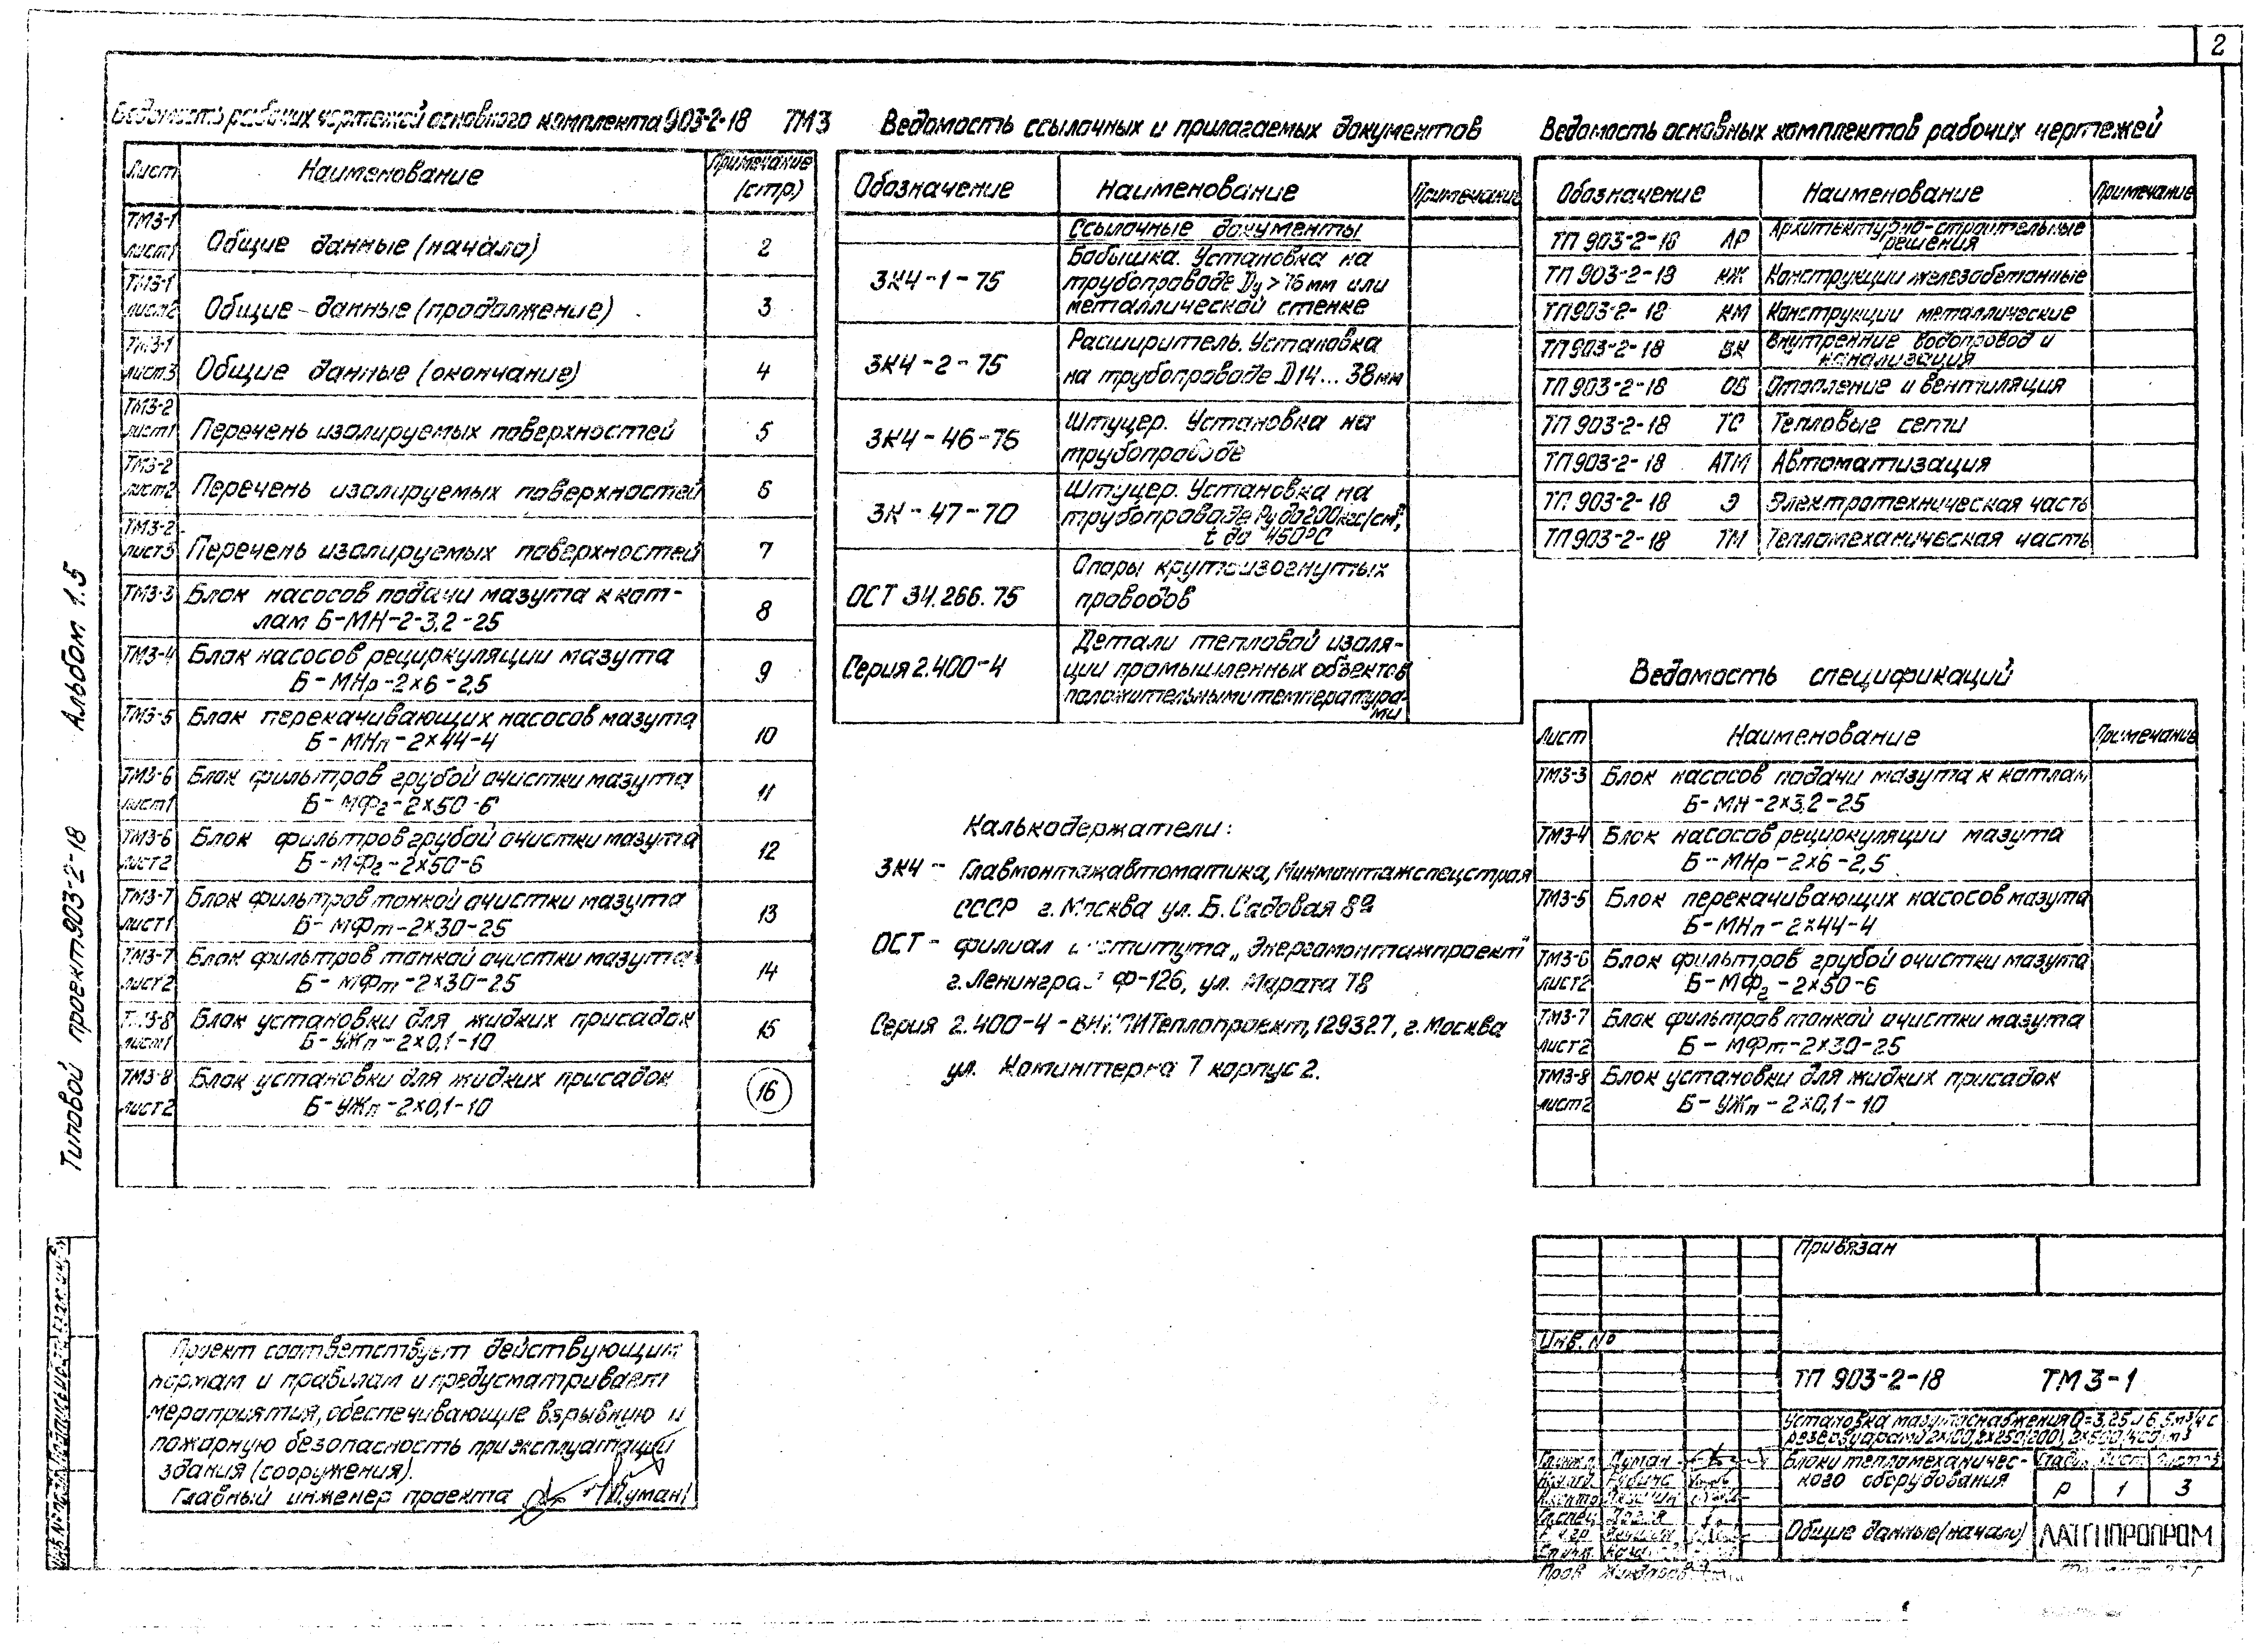 2
Ведомость рабочих чертежей основного комплекта 903-2-18 ТМ3
Лист Наименование Примечание (стр)
ТМ3-1 лист1 Общие данные (начало) 2
ТМ3-1 лист2 Общие данные (продолжение) 3
ТМ3-1 лист3 Общие данные (окончание) 4
ТМ3-2 лист1 Перечень изолируемых поверхностей 5
ТМ3-2 лист2 Перечень изолируемых поверхностей 6
ТМ3-2 лист3 Перечень изолируемых поверхностей 7
ТМ3-3 Блок насосов подачи мазута к кот-
лам Б-МН-2-3,2-25 8
ТМ3-4 Блок насосов рециркуляции мазута
Б-МНр-2×6-2,5 9
ТМ3-5 Блок перекачивающих насосов мазута
Б-МНп-2×44-4 10
ТМ3-6 Блок фильтров грубой очистки мазута
лист1 Б-МФг-2×50-6 11
ТМ3-6 Блок фильтров грубой очистки мазута
лист2 Б-МФг-2×50-6 12
ТМ3-7 Блок фильтров тонкой очистки мазута
лист1 Б-МФт-2×30-25 13
ТМ3-7 Блок фильтров тонкой очистки мазута
лист2 Б-МФт-2×30-25 14
ТМ3-8 Блок установки для жидких присадок
лист1 Б-УЖп-2×0,1-10 15
ТМ3-8 Блок установки для жидких присадок
лист2 Б-УЖп-2×0,1-10 16
Ведомость ссылочных и прилагаемых документов
Обозначение Наименование Примечание
Ссылочные документы
3К4-1-75 Бобышка. Установка на
трубопроводе Dу>76мм или
металлической стенке
3К4-2-75 Расширитель. Установка
на трубопроводе D14...38мм
3К4-46-75 Штуцер. Установка на
трубопроводе
3К-47-70 Штуцер. Установка на
трубопроводе Ру до 200кгс/см²,
t до 450°С
ОСТ 34.266.75 Опоры крутоизогнутых
проводов
Серия 2.400-4 Детали тепловой изоля-
ции промышленных объектов
положительными температура-
ми
Калькодержатели:
3К4 - Главмонтажавтоматика, Минмонтажспецстроя
СССР г. Москва ул. Б. Садовая 8а
ОСТ - филиал института „Энергомонтажпроект"
г. Ленинград Ф-126, ул. Марата 78
Серия 2.400-4 - ВНИПИТеплопроект, 129327, г. Москва
ул. Коминтерна 7 корпус 2.
Ведомость основных комплектов рабочих чертежей
Обозначение Наименование Примечание
ТП 903-2-18 АР Архитектурно-строительные
решения
ТП 903-2-18 КЖ Конструкции железобетонные
ТП 903-2-18 КМ Конструкции металлические
ТП 903-2-18 ВК Внутренние водопровод и
канализация
ТП 903-2-18 ОВ Отопление и вентиляция
ТП 903-2-18 ТС Тепловые сети
ТП 903-2-18 АТМ Автоматизация
ТП 903-2-18 Э Электротехническая часть
ТП 903-2-18 ТМ Тепломеханическая часть
Ведомость спецификаций
Лист Наименование Примечание
ТМ3-3 Блок насосов подачи мазута к котлам
Б-МН-2×3,2-25
ТМ3-4 Блок насосов рециркуляции мазута
Б-МНр-2×6-2,5
ТМ3-5 Блок перекачивающих насосов мазута
Б-МНп-2×44-4
ТМ3-6 Блок фильтров грубой очистки мазута
лист2 Б-МФг-2×50-6
ТМ3-7 Блок фильтров тонкой очистки мазута
лист2 Б-МФт-2×30-25
ТМ3-8 Блок установки для жидких присадок
лист2 Б-УЖп-2×0,1-10
Типовой проект 903-2-18 Альбом 1.5
Проект соответствует действующим
нормам и правилам и предусматривает
мероприятия, обеспечивающие взрывную и
пожарную безопасность при эксплуатации
здания (сооружения).
Главный инженер проекта /Думан/
Привязан
Инв. №
ТП 903-2-18 ТМ3-1
Установка мазутоснабжения Q=3,25 и 6,5м³/ч с
резервуарами 2×100, 2×250(200), 2×500(400)м³
Блоки тепломеханичес-
кого оборудования
Стадия Лист Листов
Р 1 3
Общие данные (начало)
ЛАТГИПРОПРОМ
Думан
Гл.спец
Пров